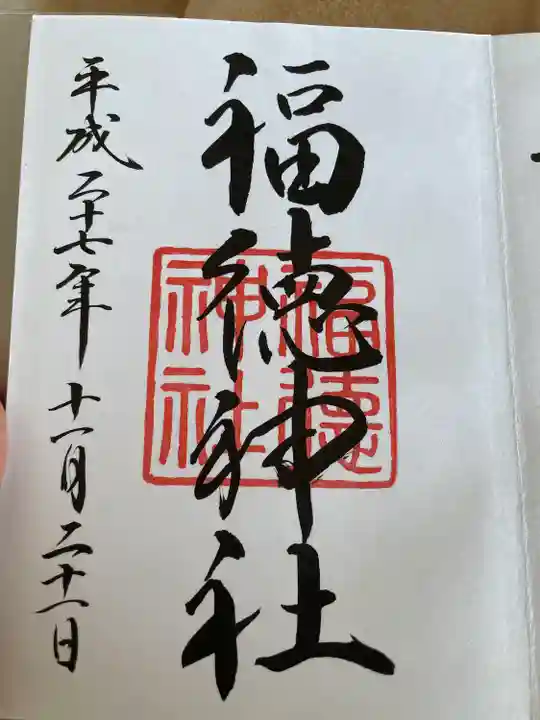 福徳神社
福徳
神社
平成二十七年十一月二十一日